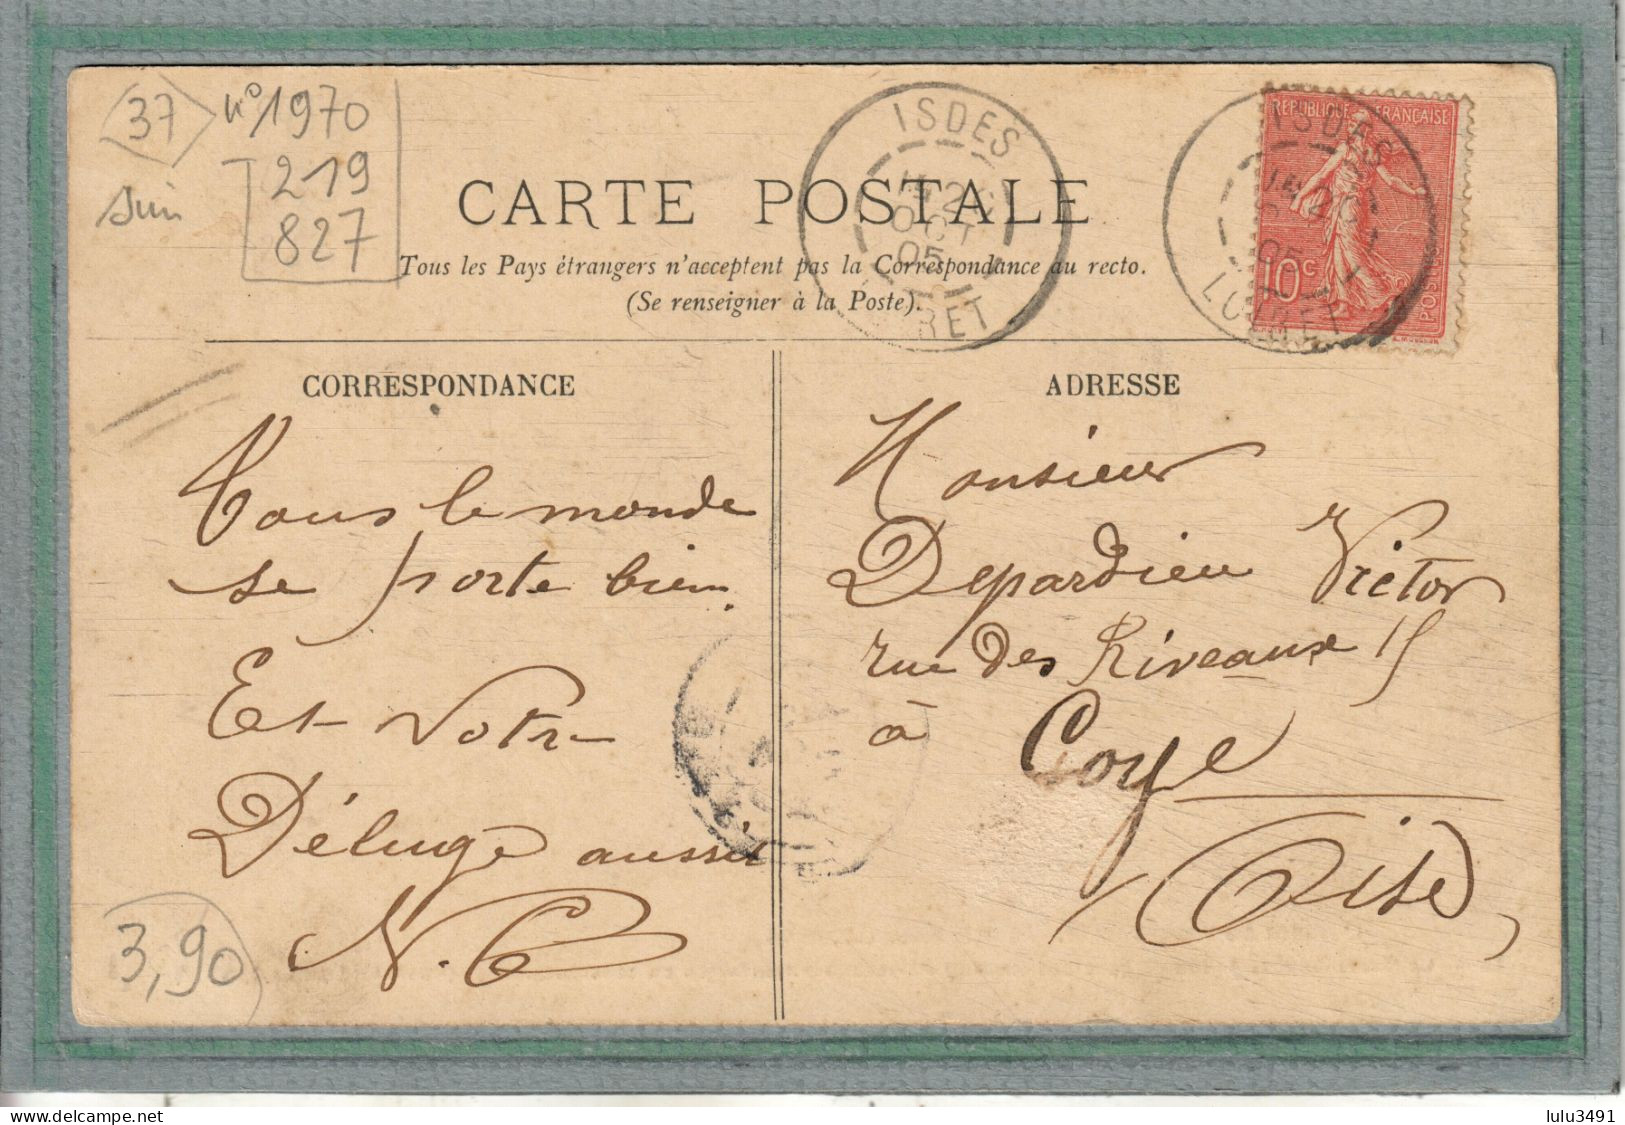 37
n° 1970
219
827
CARTE POSTALE
Tous les Pays étrangers n'acceptent pas la Correspondance au recto.
(Se renseigner à la Poste).
ISDES
OCT
05
LOIRET
REPUBLIQUE FRANÇAISE
10c
POSTES
ISDES
05
LOIRET
CORRESPONDANCE
Tous le monde
se porte bien.
Et Votre
Déluge aussi
N. C
3,90
ADRESSE
Monsieur
Depardieu Victor
rue des Riveaux 15
à Coye
Oise
delcampe.net
lulu3491